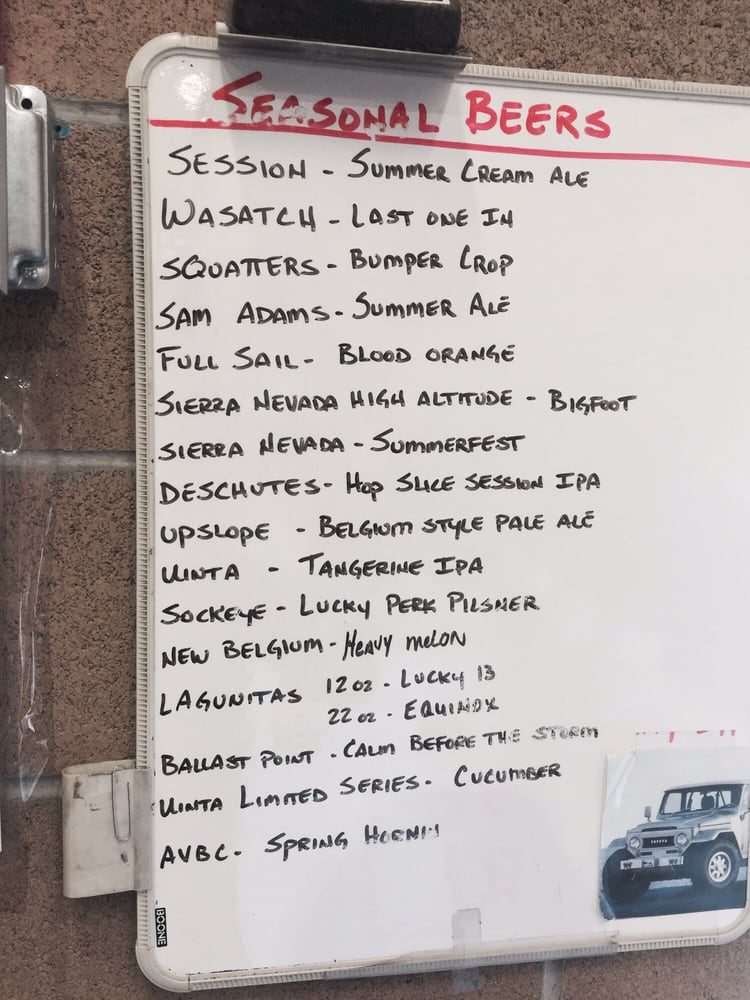 SEASONAL BEERS
SESSION - SUMMER CREAM ALE
WASATCH - LAST ONE IN
SQUATTERS - BUMPER CROP
SAM ADAMS - SUMMER ALE
FULL SAIL - BLOOD ORANGE
SIERRA NEVADA HIGH ALTITUDE - BIGFOOT
SIERRA NEVADA - SUMMERFEST
DESCHUTES - HOP SLICE SESSION IPA
UPSLOPE - BELGIUM STYLE PALE ALE
UINTA - TANGERINE IPA
SOCKEYE - LUCKY PERK PILSNER
NEW BELGIUM - HEAVY MELON
LAGUNITAS 12 oz - LUCKY 13
22 oz - EQUINOX
BALLAST POINT - CALM BEFORE THE STORM
UINTA LIMITED SERIES - CUCUMBER
AVBC - SPRING HORNIN
TOYOTA
BOONE